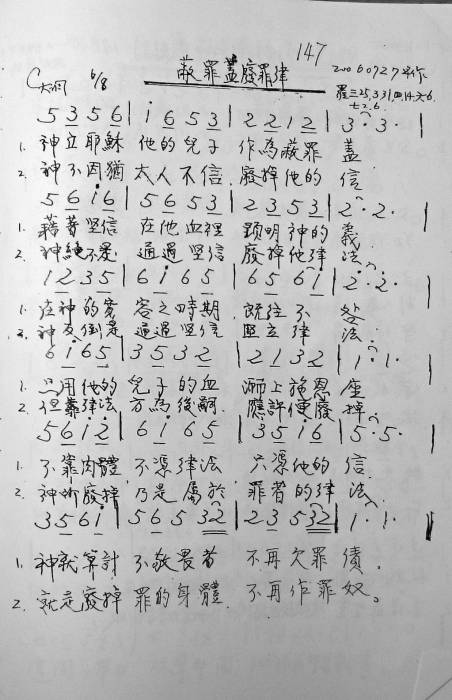 147
蔽罪蓋廢罪律
C大調 6/8
20060727 作
羅三25,3 31,四14,六6,
七2.6
5 3 5 6 | i 6 5 3 | 2 2 1 2 | 3 · 3 ·
1. 神立耶穌 他的兒子 作為蔽罪 蓋
2. 神不因猶 太人不信 廢掉他的 信
5 6 i 6 | 5 6 5 3 | 2 3 5 3 | 2 · 2 ·
1. 藉著堅信 在他血裡 顯明神的 義
2. 神絕不是 通過堅信 廢掉他律 法
1 2 3 5 | 6 i 6 5 | 6 5 6 i | 2 · 2 ·
1. 在神的寬 容之時期 既往不 咎
2. 神反倒是 通過堅信 堅立律 法
6 i 6 5 | 3 5 3 2 | 2 1 3 2 | 1 · 1 ·
1. 只用他的 兒子的血 洒上施恩 座
2. 但靠律法 方為後嗣 應許便廢 掉
5 6 i 2 | 6 i 6 5 | 3 5 i 6 | 5 · 5 ·
1. 不靠肉體 不憑律法 只憑他的 信
2. 神所廢掉 乃是屬於 罪者的律 法
3 5 6 i | 5 6 5 3 2 | 2 3 5 3 2 | 1 · 1 ·
1. 神就算討 不敬畏者 不再欠罪 債。
2. 就是廢掉 罪的身體 不再作罪 奴。